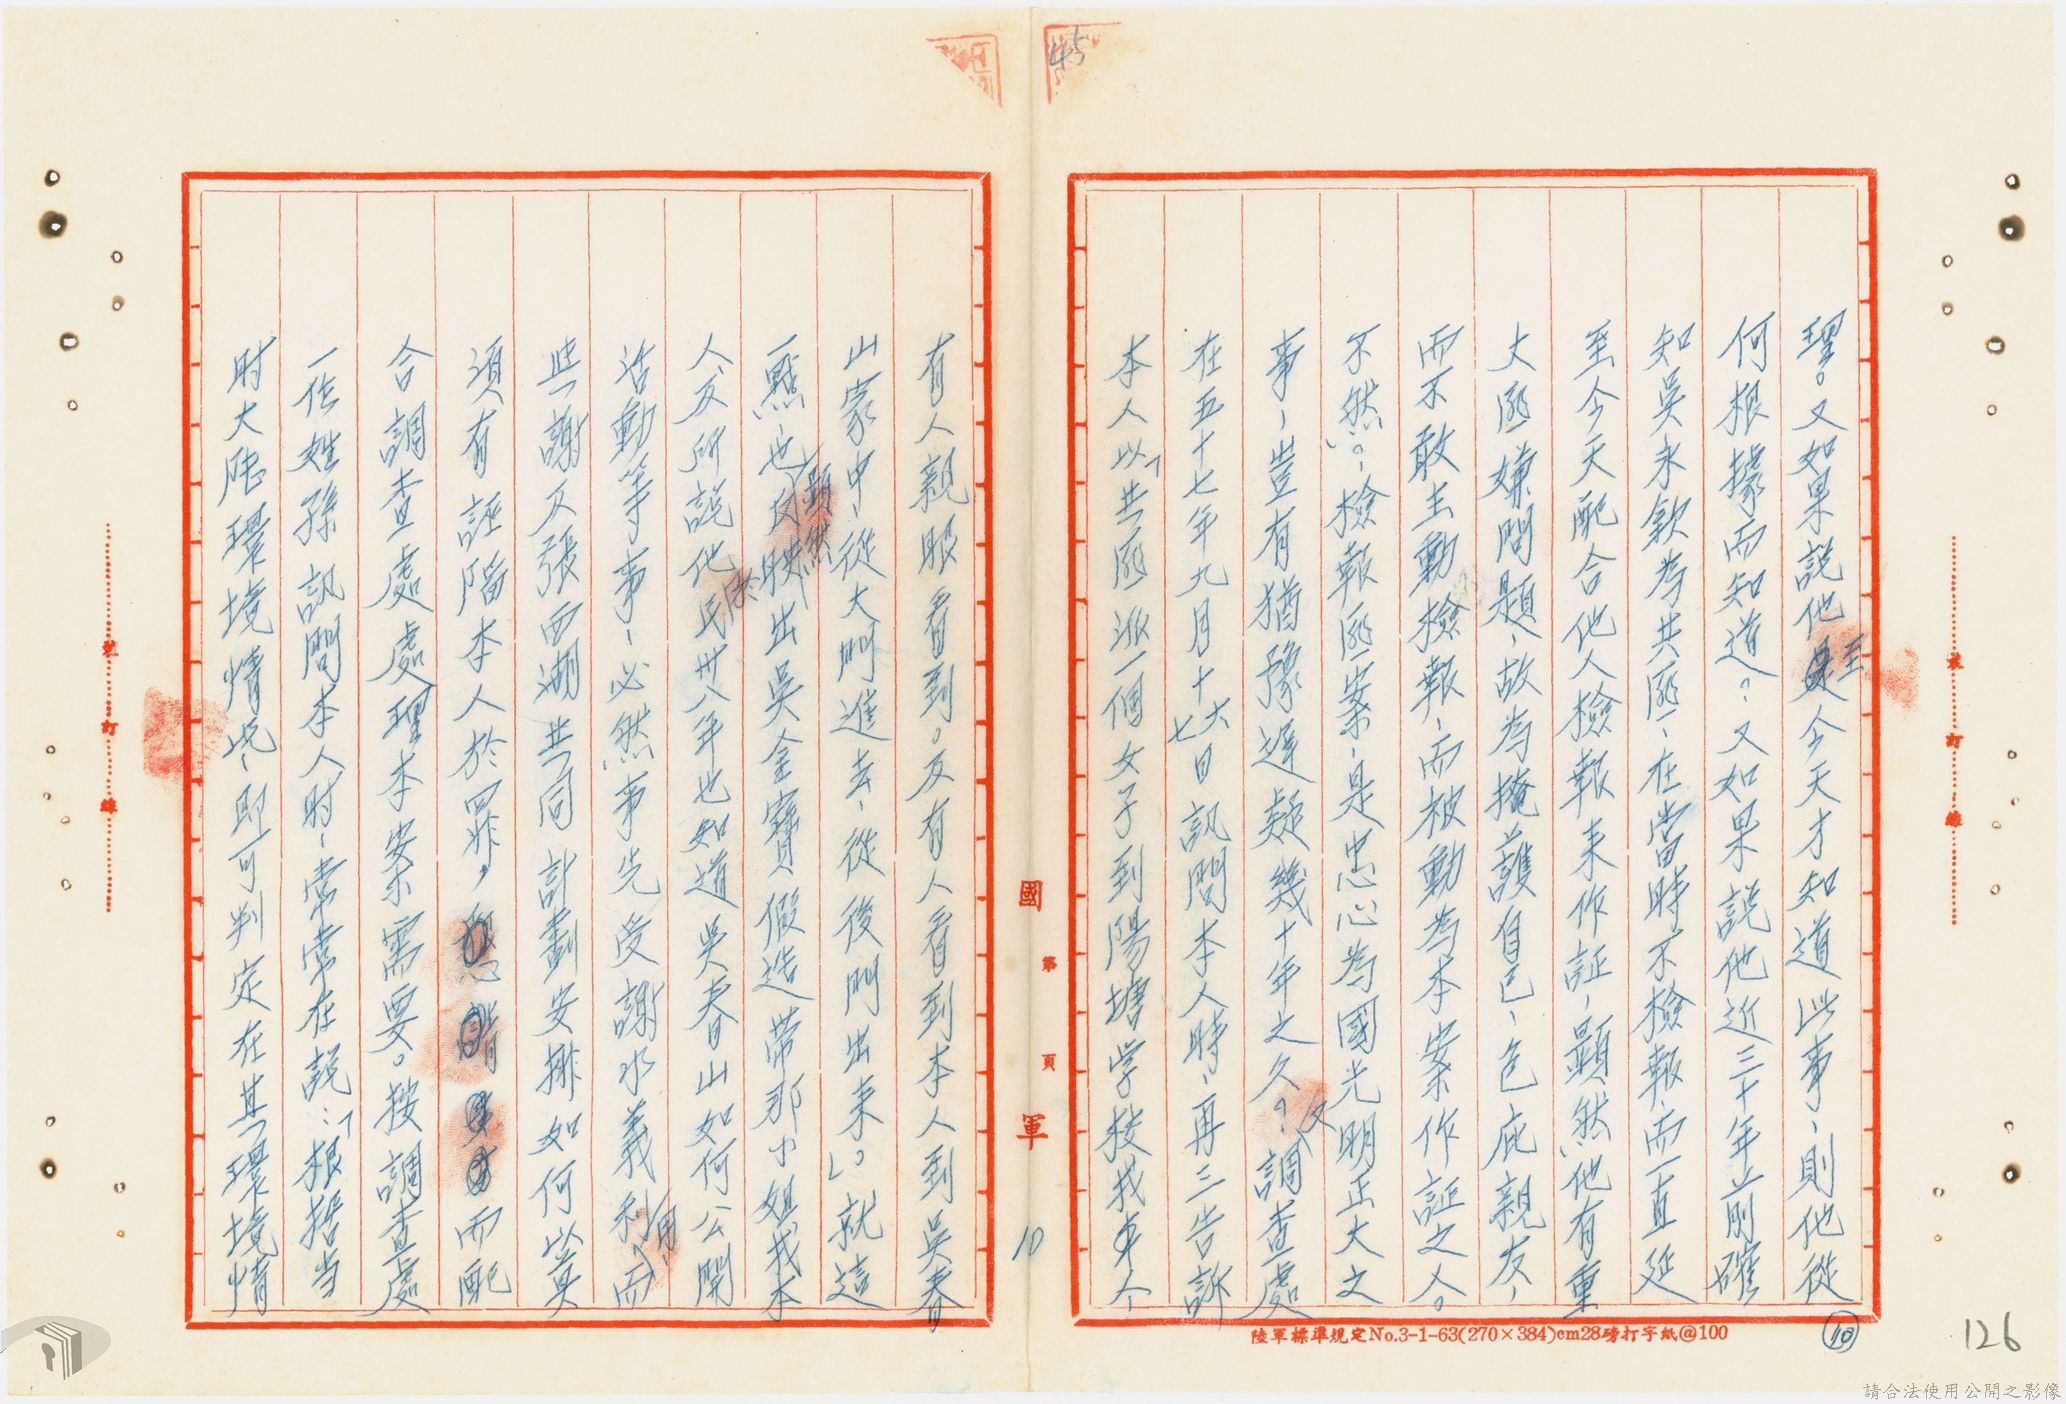 45
理。又如果說他至今天才知道此事，則他從
何根據而知道？又如果說他近三十年前確
知吳末欽為共匪，在當時不檢報而一直延
至今天配合他人檢報來作証，顯然他有重
大匪嫌問題，故為掩護自己，包庇親友，
而不敢主動檢報，而被動為本案作証之人。
不然。檢報匪案，是忠心為國光明正大之
事，豈有猶豫遲疑幾十年之久？又調查處
在五十七年九月十六七日訊問本人時，再三告訴
本人以「共匪派一個女子到陽塘学校找本人，
國軍
第 頁
10
有人親眼看到。又有人看到本人到吳春
山家中，從大門進去，從後門出來」。就這
一點，也顯然反映出吳金寶假造帶那小姐找本
人及所說他民法卅八年也知道吳春山如何公開
活動等事，必然事先受謝水義利用而
與謝及張西湖共同計劃安排如何當真
須有誣陷本人於罪，而配
合調查處處理本案需要。按調查處
一位姓孫訊問本人時，常常在說：「根据当
时大陸環境情况，即可判定在其環境情
裝 訂 線
號 訂 線
陸軍標準規定No.3-1-63(270×384)cm28磅打字紙@100
10
126
請合法使用公開之影像